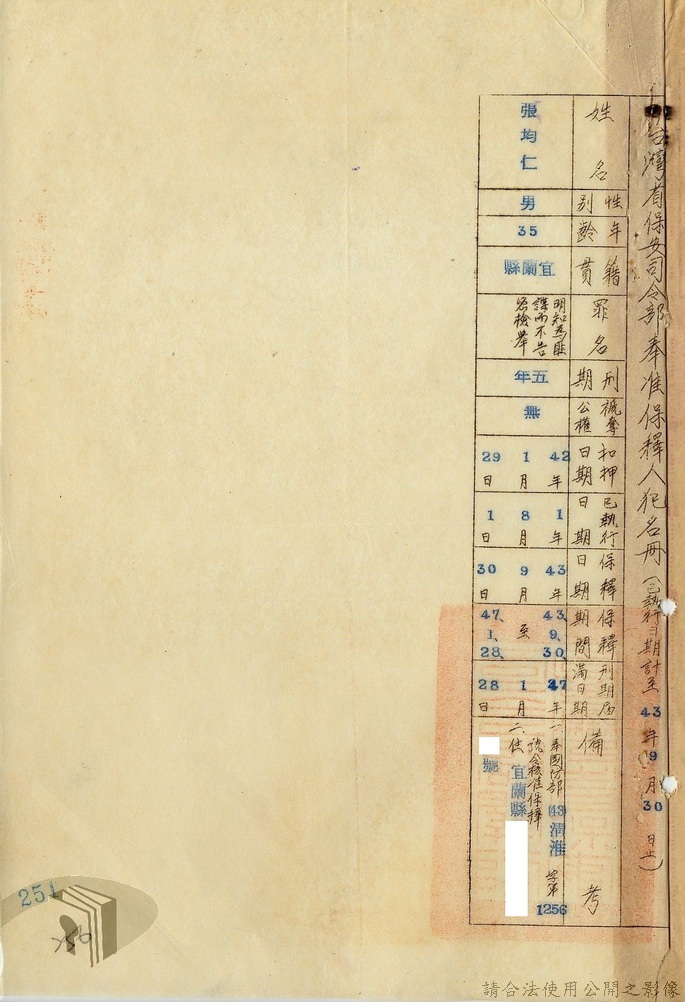 台灣省保安司令部奉准保釋人犯名冊(已執行日期計至43年9月30日止)
姓名
張均仁
性別
男
年齡
35
籍貫
宜蘭縣
罪名
明知為匪
諜而不告
密檢舉
刑期
五年
褫奪
公權
無
扣押
日期
42年1月29日
已執行
日期
1年8月1日
保釋
日期
43年9月30日
保釋
期間
43、9、30、
至
47、1、28、
刑期屆
滿日期
47年1月28日
備考
一奉國防部(43)清淮字第1256
號令核准保釋
二住宜蘭縣
號
251
256
請合法使用公開之影像